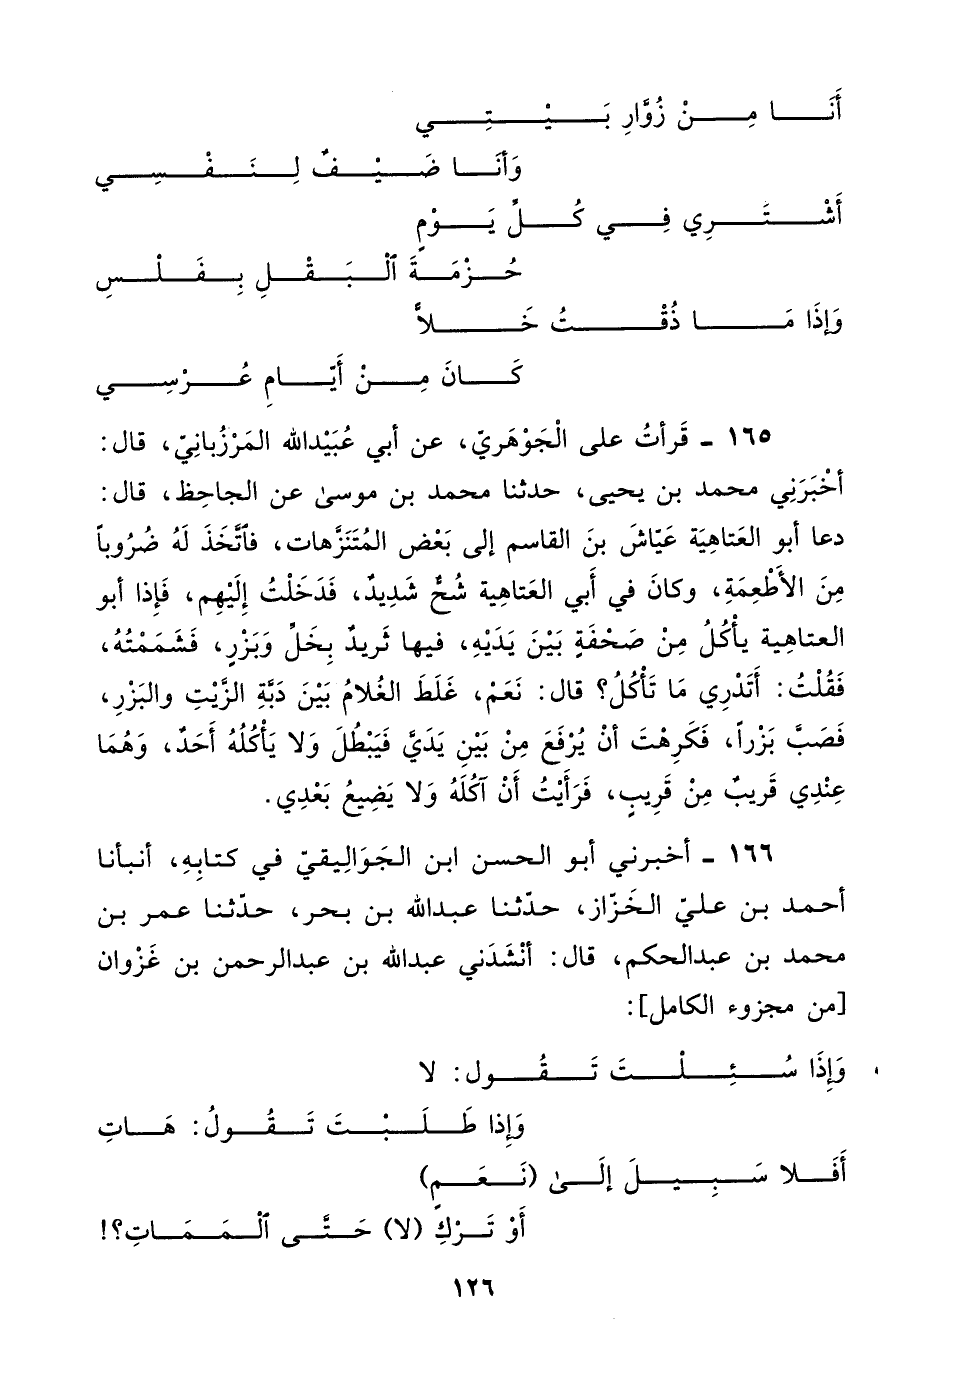 أَنَا مِنْ زُوَّارِ بَيْتِي
وَأَنَا ضَيْفٌ لِنَفْسِي
أَشْتَرِي فِي كُلِّ يَوْمٍ
حُزْمَةَ ٱلْبَقْلِ بِفَلْسِ
وَإِذَا مَا ذُقْتُ خَلاًّ
كَانَ مِنْ أَيَّامِ عُرْسِي
١٦٥ ـ قَرأتُ على الْجَوْهَرِيّ، عن أبي عُبَيْدالله المَرْزُبانِيّ، قال:
أخْبَرَنِي محمد بن يحيى، حدثنا محمد بن موسىٰ عن الجاحِظ، قال:
دعا أبو العَتاهِيَة عَيّاشَ بنَ القاسم إلى بَعْض المُتَنَزَّهات، فَٱتَّخَذَ لَهُ ضُرُوباً
مِنَ الأَطْعِمَةِ، وكانَ في أَبي العَتاهِية شُحٌّ شَدِيدٌ، فَدَخَلْتُ إلَيْهِم، فَإذا أبو
العتاهِية يأْكُلُ مِنْ صَحْفَةٍ بَيْنَ يَدَيْهِ، فيها ثَريدٌ بِخَلٍّ وَبَزْرٍ، فَشَمَمْتُهُ،
فَقُلْتُ: أَتَدْرِي مَا تَأْكُلُ؟ قال: نَعَمْ، غَلَطَ الغُلامُ بَيْنَ دَبَّةِ الزَّيْتِ والبَزْرِ،
فَصَبَّ بَزْراً، فَكَرِهْتَ أنْ يُرْفَعَ مِنْ بَيْنِ يَدَيَّ فَيَبْطُلَ وَلا يَأْكُلُهُ أَحَدٌ، وَهُمَا
عِنْدِي قَريبٌ مِنْ قَرِيبٍ، فَرَأَيْتُ أَنْ آكُلَهُ وَلا يَضِيعُ بَعْدِي.
١٦٦ ـ أخبرني أبو الحسن ابن الجَوَالِيقيّ في كتابِهِ، أنبأنا
أحمد بن عليّ الخَزّاز، حدّثنا عبدالله بن بحر، حدّثنا عمر بن
محمد بن عبدالحكم، قال: أنْشَدَني عبدالله بن عبدالرحمن بن غَزْوان
[من مجزوء الكامل]:
وَإِذَا سُئِلْتَ تَقُول: لا
وَإِذا طَلَبْتَ تَقُولُ: هَاتِ
أَفَلا سَبِيلَ إلَىٰ (نَعَمٍ)
أَوْ تَرْكِ (لا) حَتَّى ٱلْمَمَاتِ؟!
١٢٦